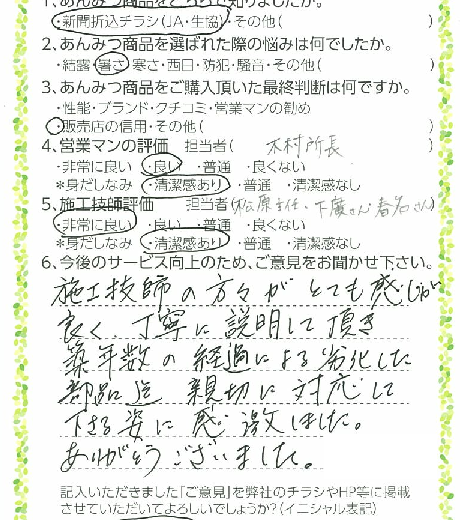 1、あんみつ商品をどちらで知りましたか。
・新聞折込チラシ(JA・生協)・その他( )
2、あんみつ商品を選ばれた際の悩みは何でしたか。
・結露・暑さ・寒さ・西日・防犯・騒音・その他( )
3、あんみつ商品をご購入頂いた最終判断は何ですか。
・性能・ブランド・クチコミ・営業マンの勧め
・販売店の信用・その他( )
4、営業マンの評価 担当者( 木村所長 )
・非常に良い ・良い ・普通 ・良くない
*身だしなみ ・清潔感あり ・普通 ・清潔感なし
5、施工技師評価 担当者(松原主任、下廣さん春名さん)
・非常に良い ・良い ・普通 ・良くない
*身だしなみ ・清潔感あり ・普通 ・清潔感なし
6、今後のサービス向上のため、ご意見をお聞かせ下さい。
施工技師の方々がとても感じが
良く、丁寧に説明して頂き
築年数の経過による劣化した
部品迄親切に対応して
下さる姿に感激しました。
ありがとうございました。
記入いただきました「ご意見」を弊社のチラシやHP等に掲載
させていただいてよろしいでしょうか?(イニシャル表記)